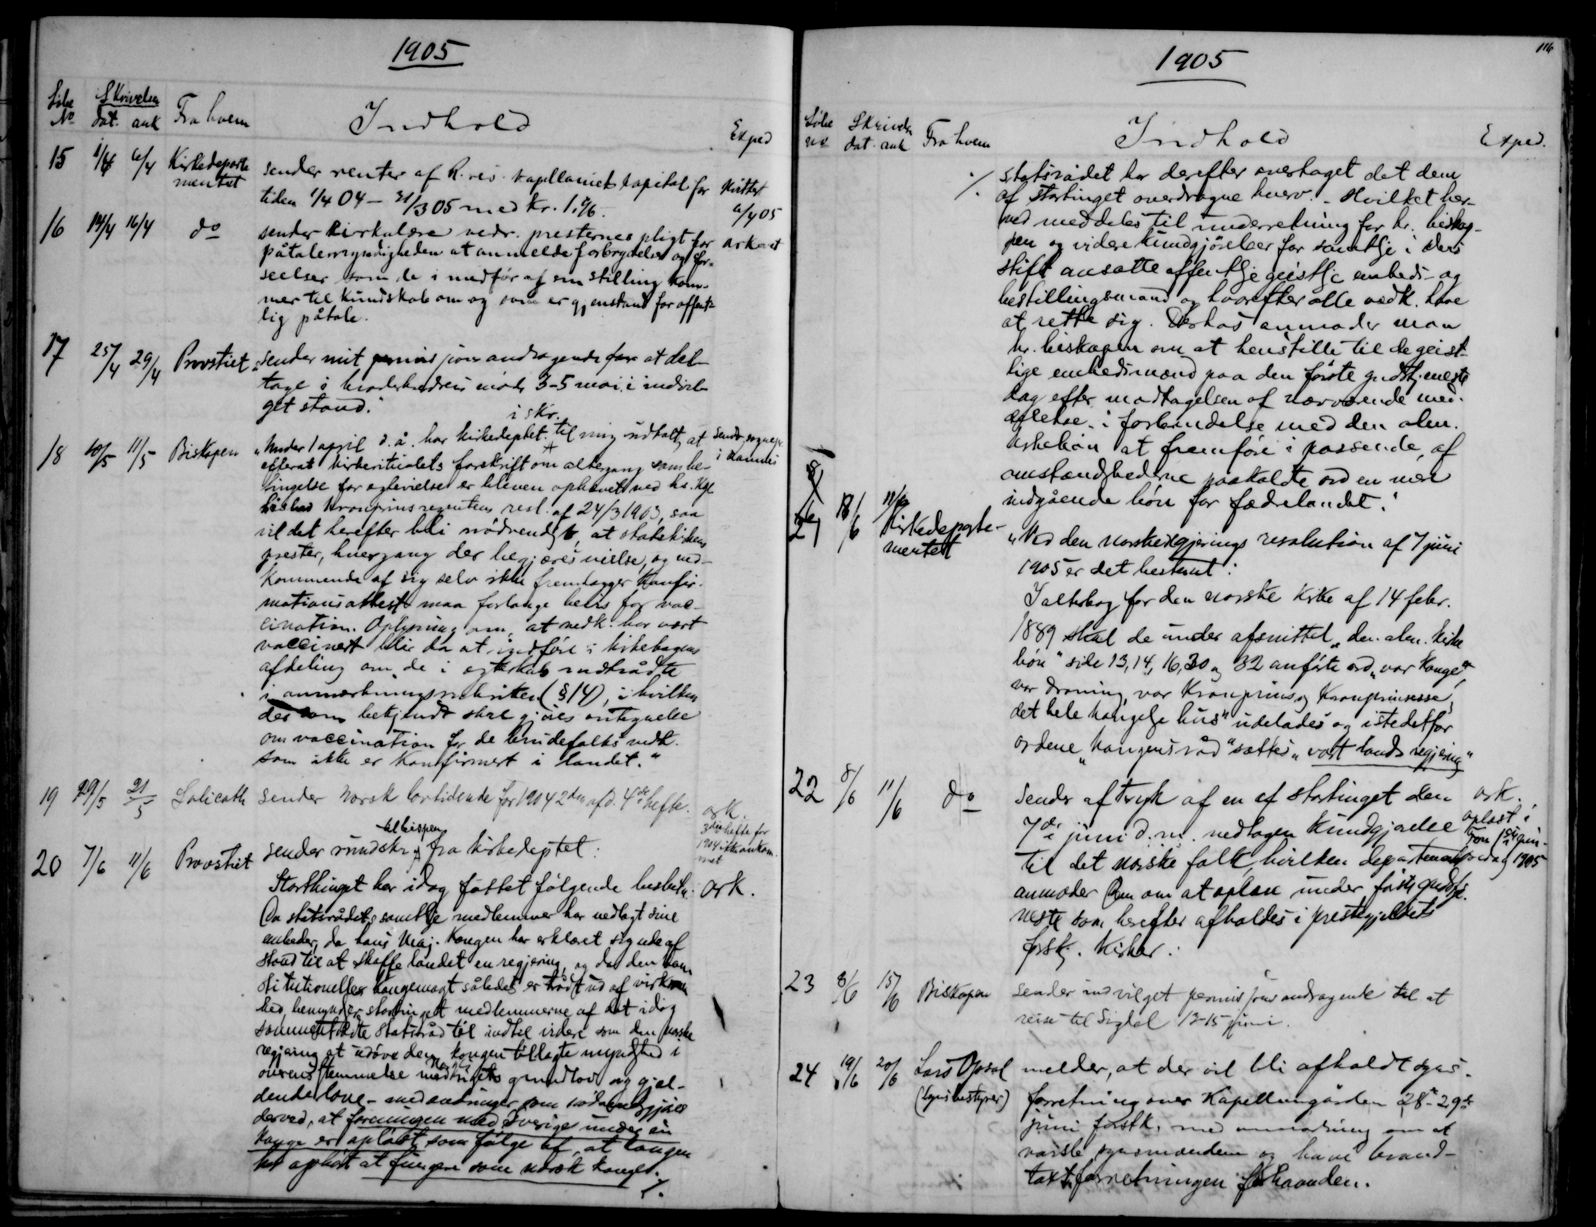 1905
Löbe No Skrivelsen dat. ank Fra hvem Indhold Exped
15 1/4 6/4 Kirkedeparte-
mentet
sender renter af R. res. kapellaniets kapital for
tiden 1/4 04 – 31/3 05 med Kr.
kvittert
6/4 05
16 14/4 16/4 do sender Cirkulære vedr. presternes pligt for
påtalemyndigheden at anmelde forbrydelser og for-
seelser som de i medför af sin stilling kom-
mer til kundskab om og som er gjenstand for offent-
lig påtale.
17 25/4 29/4 Provstiet sender mit andragende at del-
tage i möde 3-5 mai i indvil-
get stand.
18 10/5 11/5 Biskopen „Under 1 april d. å. har kirkedeptet. i skr. til mig udtalt, at
efterat kirkeritualets forskrift om altergang som be-
tingelse for egtevielse er bleven ophævet ved hs. kgl.
höihed Kronprinsregentens resl. af 24/3 1903, saa
vil det herefter bli nödvendigt, at statskirkens
prester, hvergang der begjæres vielse, og ved-
kommende af sig selv ikke fremlægger konfir-
mationsattest maa forlange bevis for vac-
cination. Oplysning om, at vedk. har vært
vaccinert blir da at indföre i kirkebogens
afdeling om „de i egteskab indtrådte
i anmærkningsrubriken (§ 14), i hvilken
der som bekjendt skal gjöres antegnelse
om vaccination for de brudefolks vedk.
som ikke er konfirmert i landet.“
19 29/5 21/5 sender Norsk lovtidende for 1904 2den afd. 4de hefte. ark.
3die hefte for
1904 ikke ankom-
met
20 7/6 11/6 Provstiet sender rundskr. til bispen fra kirkedeptet:
Storthinget har idag fattet fölgende beslutn. ark.
Da statsrådets samtlige medlemmer har nedlagt sine
embeder, da hans Maj. Kongen har erklæret sig ude af
stand til at skaffe landet en regjering, og da den kon-
stitutionelle kongemagt således er trådt ud af virksom-
hed, bemynder stortinget medlemmerne af det idag
statsråd til indtil videre som den norske
regjering at udöve den kongen tillagte myndighed i
overensstemmelse med Norges riges grundlov og gjæl-
dende love – med de ændringer som nödvendiggjöres
derved, at foreningen med Sverige under en
konge er oplöst som fölge af, at kongen
har ophört at fungere som norsk konge.
%
116
1905
Löbe No Skrivelsen dat. ank Fra hvem Indhold Exped.
% statsrådet har derefter overtaget det dem
af stortinget overdragne hverv. – Hvilket her-
ved meddeles til underretning for hr. bisko-
pen og videre kundgjörelser for samtlge i deres
stift ansatte offentlge geistlge embeds- og
bestillingsmænd og hvorefter alle vedk. have
at rette sig. Derhos anmoder man
hr. biskopen om at henstille til de geist-
lige embedsmænd paa den förste gudstjeneste
dag efter modtagelsen af nærværende med-
delelse i forbindelse med den alm.
kirkebön at fremföre i passende, af
omstændighederne paakaldte ord en mer
indgående bön for fædrelandet.“
21 18/6 Kirkedeparte-
mentet
„Ved den norske regjerings resolution af 7 juni
1905 er det bestemt:
I alterbog for den norske kirke af 14 febr.
1889 skal de under afsnittet „den alm. kirke
bön“ side 13, 14, 16, 30 og 32 anförte ord „vor Konge“,
vor dronning, vor Kronprins og Kronprinsesse,
det hele kongelge hus“ udelades og istedetfor
ordene „kongens råd“ sættes „vort lands regjering“
22 8/6 11/6 do sender aftryk af en af stortinget den ark.
7de juni d. m. vedtagen kundgjörelse
oplæst i
1905
til det norske folk, hvilken departementet
anmoder om at oplæse under förste gudstje-
neste som herefter afholdes i prestegjeldets
forsk. kirker.
23 8/6 15/6 Biskopen sender indvilget andragende til at
reise til Sigdal 13-15 juni.
24 19/6 20/6 Lars Opsal
(Lensbestyrer)
melder, at der vil bli afholdt syns-
forretning over Kapellangården 28- 29de
juni förstk. med anmodning om at
varsle synsmændene og have brand-
takstforretningen forhaanden.